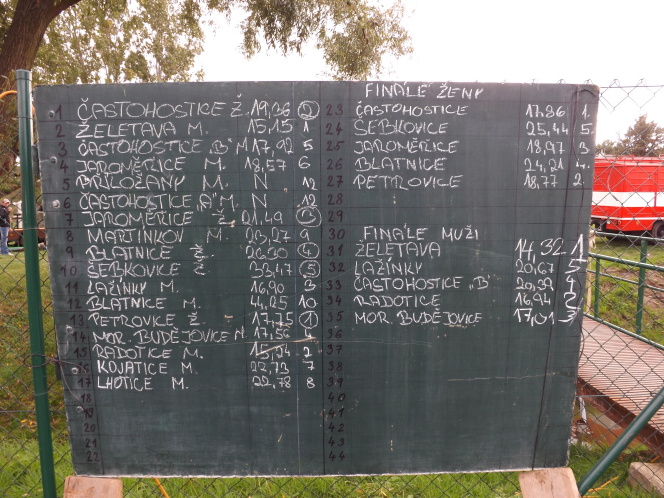 1 ČASTOHOSTICE Ž. 19,36 2
2 ŽELETAVA M. 15,15 1
3 ČASTOHOSTICE „B" M 17,92 5
4 JAROMĚŘICE M. 18,57 6
5 PŘÍLOŽANY M. N 12
6 ČASTOHOSTICE „A" M. N 12
7 JAROMĚŘICE Ž. 21.49 3
8 MARTÍNKOV M. 23,27 9
9 BLATNICE Ž. 26.30 4
10 ŠEBKOVICE Ž. 33,47 5
11 LAŽÍNKY M. 16,90 3
12 BLATNICE M. 44,25 10
13 PETROVICE Ž. 17,75 1
14 MOR. BUDĚJOVICE M. 17,56 4
15 RADOTICE M. 15,94 2
16 KOJATICE M. 22,73 7
17 LHOTICE M. 22,78 8
18
19
20
21
22
FINÁLE ŽENY
23 ČASTOHOSTICE 17.96 1.
24 ŠEBKOVICE 25,44 5.
25 JAROMĚŘICE 18,97 3
26 BLATNICE 24,21 4.
27 PETROVICE 18,77 2.
28
29
30 FINÁLE MUŽI
31 ŽELETAVA 14,32 1
32 LAŽÍNKY 20,67 5
33 ČASTOHOSTICE „B" 20,39 4
34 RADOTICE 16,94 2
35 MOR. BUDĚJOVICE 17,01 3
36
37
38
39
40
41
42
43
44